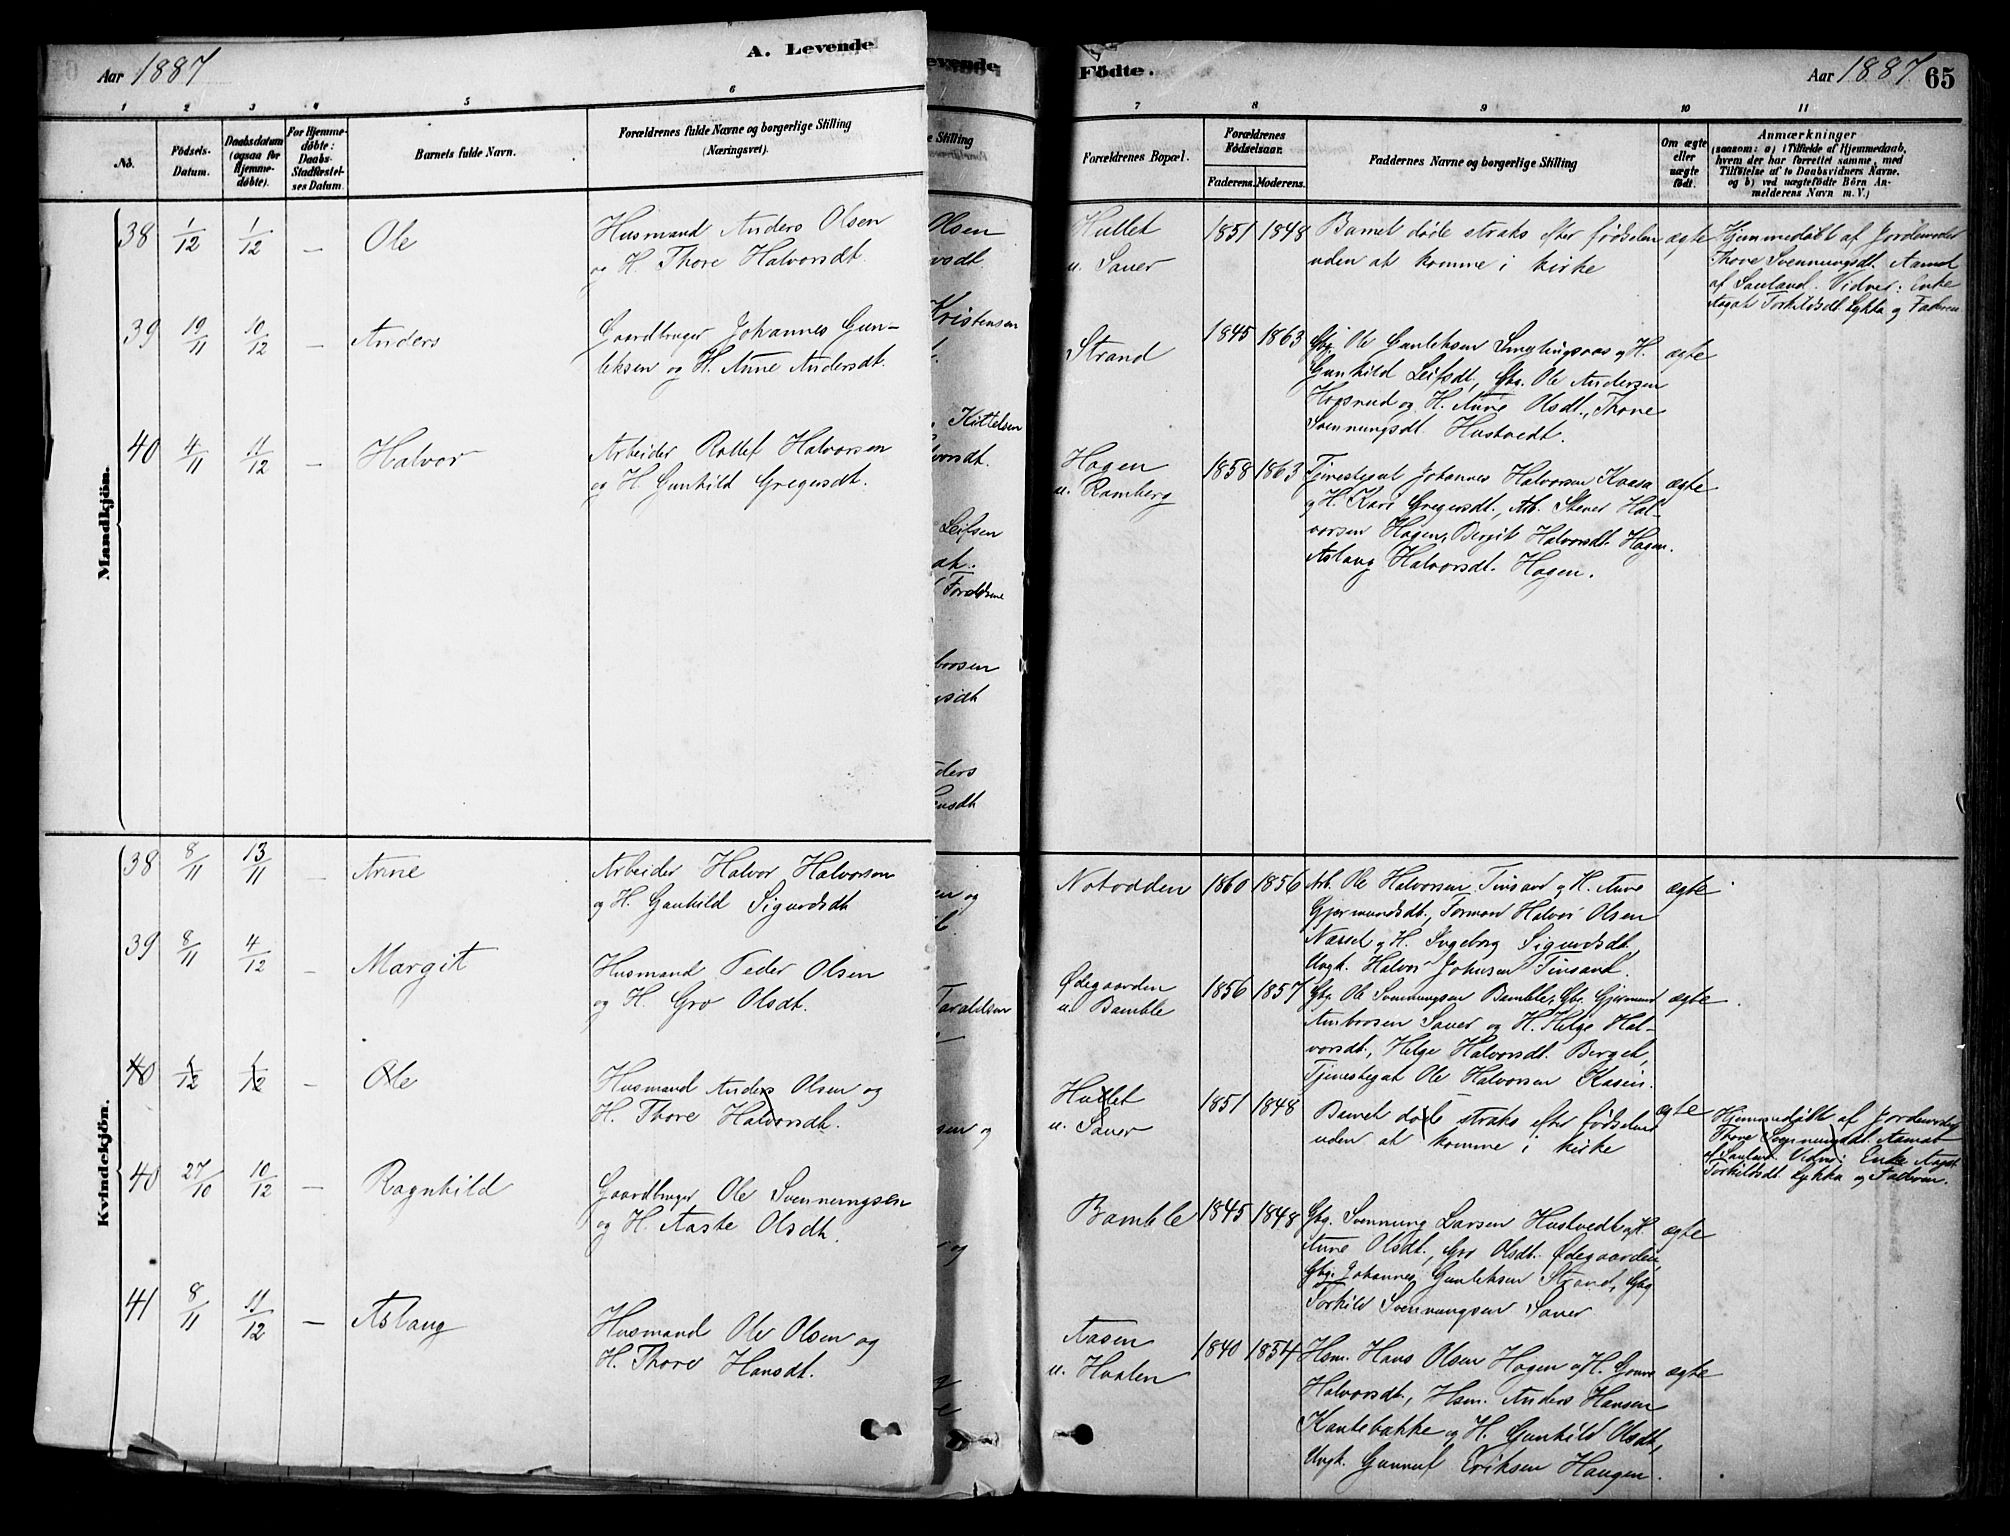 Aar 1887
A. Levende
1 2 3 4 5 6
No.
Fødsels-
Datum.
Daabsdatum
(ogsaa for
Hjemme-
døbte).
For Hjemme-
døbte:
Daabs-
Stadfæstel-
ses Datum.
Barnets fulde Navn.
Forældrenes fulde Navne og borgerlige Stilling
(Næringsvei).
Mandkjøn.
38 1/12 1/12 — Ole
Husmand Anders Olsen
og H. Thore Halvorsdt.
39 19/11 10/12 — Anders
Gaardbruger Johannes Gun-
leksen og H. Anne Andersdt.
40 4/11 11/12 — Halvor
Arbeider Rollef Halvorsen
og H Gunhild Gregersdt.
Kvindekjøn.
38 8/11 13/11 — Anne
Arbeider Halvor Halvorsen
og H. Gunhild Sigurdsdt
39 8/11 4/12 — Margit
Husmand Peder Olsen
og H. Gro Olsdt.
40 1/12 1/12 — Ole
Husmand Anders Olsen og
H. Thore Halvorsdt.
40 27/10 10/12 — Ragnhild
Gaardbruger Ole Svennungsen
og H. Aaste Olsdt.
41 8/11 11/12 — Aslaug
Husmand Ole Olsen og
H. Thore Hansdt.
Levende
Stilling
Olsen
Kristensen
Kittelsen
Leifsen
Taraldsen
Fødte.
Aar 1887. 65
7 8 9 10 11
Forældrenes Bopæl.
Forældrenes
Fødselsaar.
Faderens. Moderens.
Faddernes Navne og borgerlige Stilling
Om ægte
eller
uægte
født.
Anmærkninger
(saasom: a) i Tilfælde af Hjemmedaab,
hvem der har forrettet samme, med
Tilføielse af to Daabsvidners Navne,
og b) ved uægtefødte Börn An-
melderens Navn m. V.)
Hullet
u. Sauer
1851 1848
Barnet døde straks efter fødselen
uden at komme i kirke
ægte
Hjemmedøbt af Jordemoder
Thore Svennungsdt. Aamot
af Sauland. Vidner: Enke
Aagot Torkildsdt. Lykka og Faderen
Strand
1845 1863
Gbg. Ole Gunleksen Smytingsaas og H.
Gunhild Leifsdt., Gbg. Ole Andersen
Hogsrud og H. Anne Olsdt., Thore
Svennungsdt. Hustvedt.
ægte
Hagen
u. Ramberg
1858 1863
Tjenestegut Johannes Halvorsen Kaasa
og H. Kari Gregersdt., Arb. Stener Hal-
vorsen Hagen, Bergit Halvorsdt. Hagen.
Aslaug Halvorsdt. Hagen.
ægte
Notodden
1860 1856
Arb. Ole Halvorsen Tinsand og H. Anne
Gjermundsdt., Formand Halvor Olsen
Næset og H. Ingeborg Sigurdsdt.
Ungk. Halvor Johnsen Tinsand.
ægte
Ødegaarden
u. Bamble
1856 1857
Gbg. Ole Svennungsen Bamble, Gbr. Gjermund
Ambrosen Sauer og H. Helge Hal-
vorsdt., Helge Halvorsdt. Berget,
Tjenestegut Ole Halvorsen Kasin.
ægte
Hullet
u. Sauer
1851 1848
Barnet døde straks efter fødselen
uden at komme i kirke
ægte
Hjemmedøbt af Jordemoder
Thore Svennungsdt. Aamot
af Sauland. Vidne: Enke Aagot
Torkildsdt. Lykka og Faderen.
Bamble
1845 1848
Gbg. Svennung Larsen Hustvedt og H.
Anne Olsdt., Gro Olsdt. Ødegaarden,
Gbg. Johannes Gunleksen Strand, Gbg
Torkild Svennungsen Sauer
ægte
Aasen
u. Hvalen
1840 1854
Hsm. Hans Olsen Hagen og H. Gonve
Halvorsdt., Hsm. Anders Hansen
Kantebakke og H. Gunhild Olsdt,
Ungk. Gunnuf Eriksen Haugen.
ægte